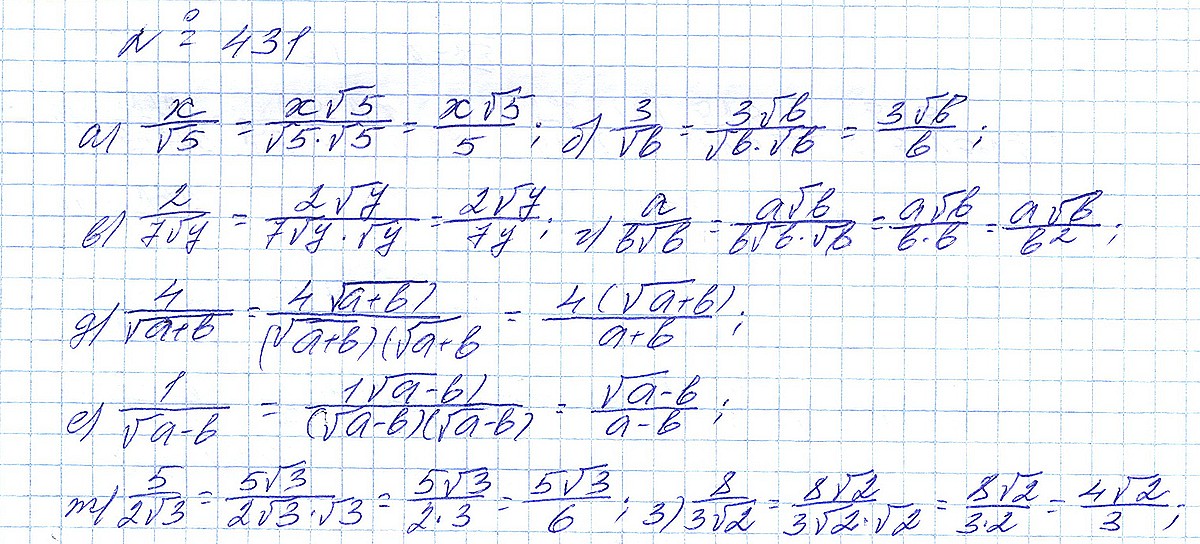 № 431
а) x/√5 = x√5/√5·√5 = x√5/5; б) 3/√b = 3√b/√b·√b = 3√b/b;
в) 2/7√y = 2√y/7√y·√y = 2√y/7y; г) a/b√b = a√b/b√b·√b = a√b/b·b = a√b/b²;
д) 4/√a+b = 4√a+b)/(√a+b)(√a+b = 4(√a+b)/a+b;
е) 1/√a-b = 1√a-b)/(√a-b)(√a-b) = √a-b/a-b;
ж) 5/2√3 = 5√3/2√3·√3 = 5√3/2·3 = 5√3/6; з) 8/3√2 = 8√2/3√2·√2 = 8√2/3·2 = 4√2/3;